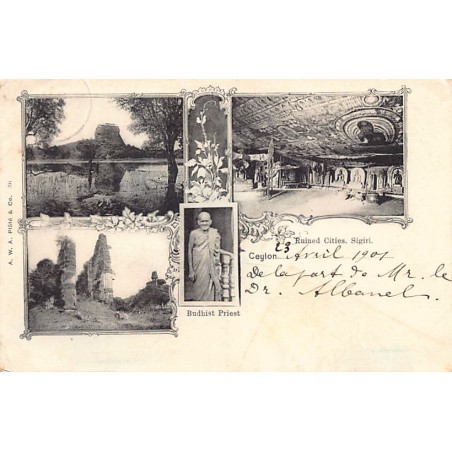 A. W. A. Plâté & Co.
Ruined Cities, Sigiri.
Budhist Priest
Ceylon 23 Avril 1901
De la part de Mr. le
Dr. Albanel.